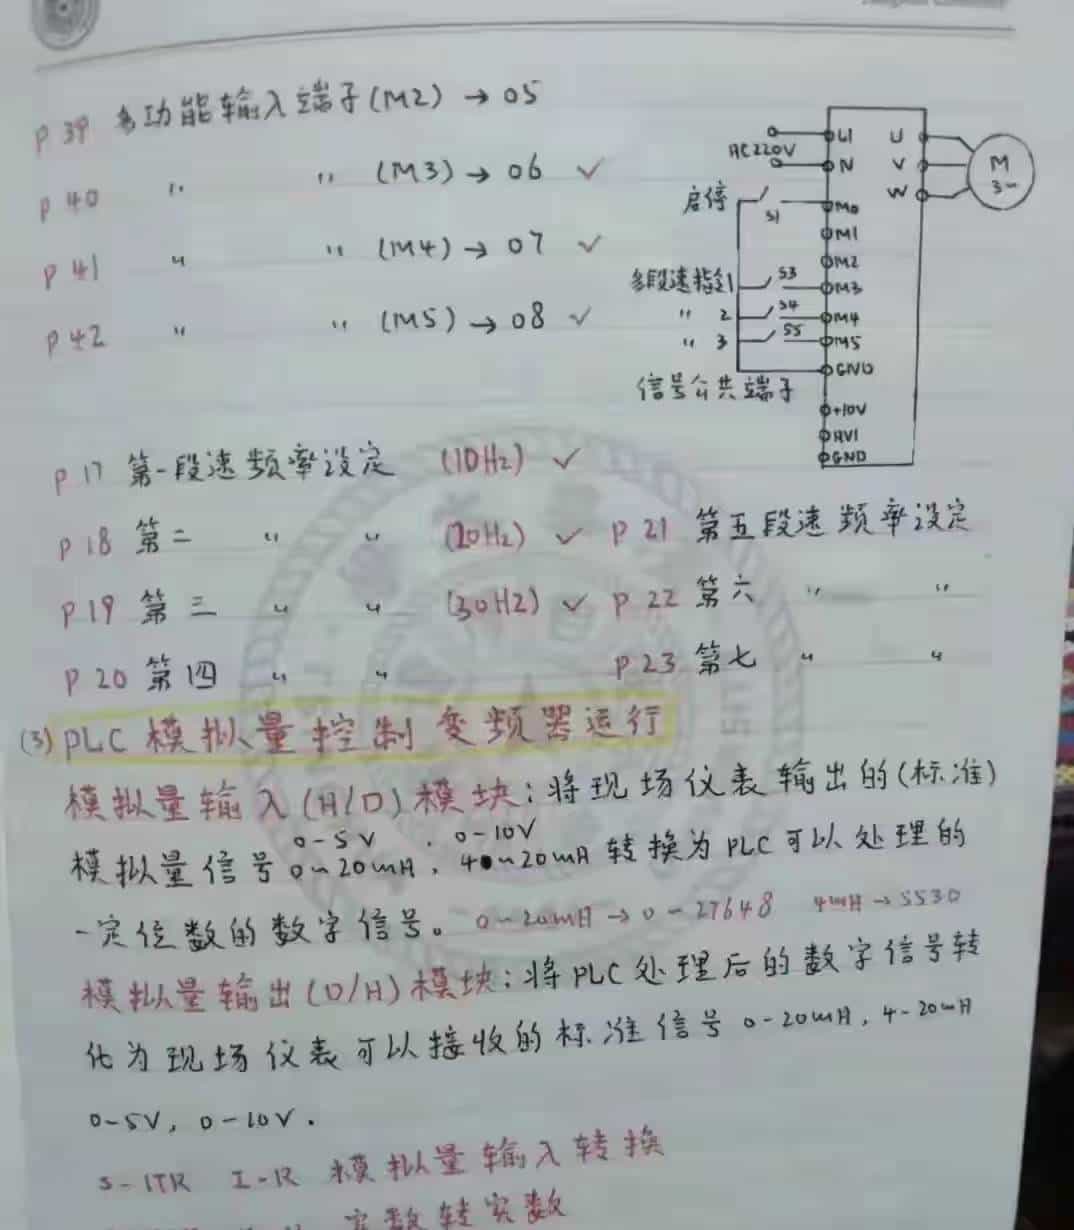 P 39 多功能输入端子(M2) → 05
P 40 〃 〃 (M3) → 06 ✓
P 41 〃 〃 (M4) → 07 ✓
P 42 〃 〃 (M5) → 08 ✓
AC220V
L1 U
N V
W
M
3~
启停 S1 M0
M1
M2
多段速指令1 S3 M3
〃 2 S4 M4
〃 3 S5 M5
GND
信号公共端子
+10V
AVI
GND
P 17 第一段速频率设定 (10Hz) ✓
P 18 第二 〃 〃 (20Hz) ✓ P 21 第五段速频率设定
P 19 第三 〃 〃 (30HZ) ✓ P 22 第六 〃 〃
P 20 第四 〃 〃 P 23 第七 〃 〃
(3) PLC 模拟量控制变频器运行
模拟量输入(A/D)模块:将现场仪表输出的(标准)
0-5V . 0-10V
模拟量信号0~20mA, 4~20mA 转换为PLC可以处理的
一定位数的数字信号。 0-20mA → 0-27648 4mA → 5530
模拟量输出(D/A)模块:将PLC处理后的数字信号转
化为现场仪表可以接收的标准信号 0-20mA, 4-20mA
0-5V, 0-10V.
S-ITR I-R 模拟量输入转换
实数